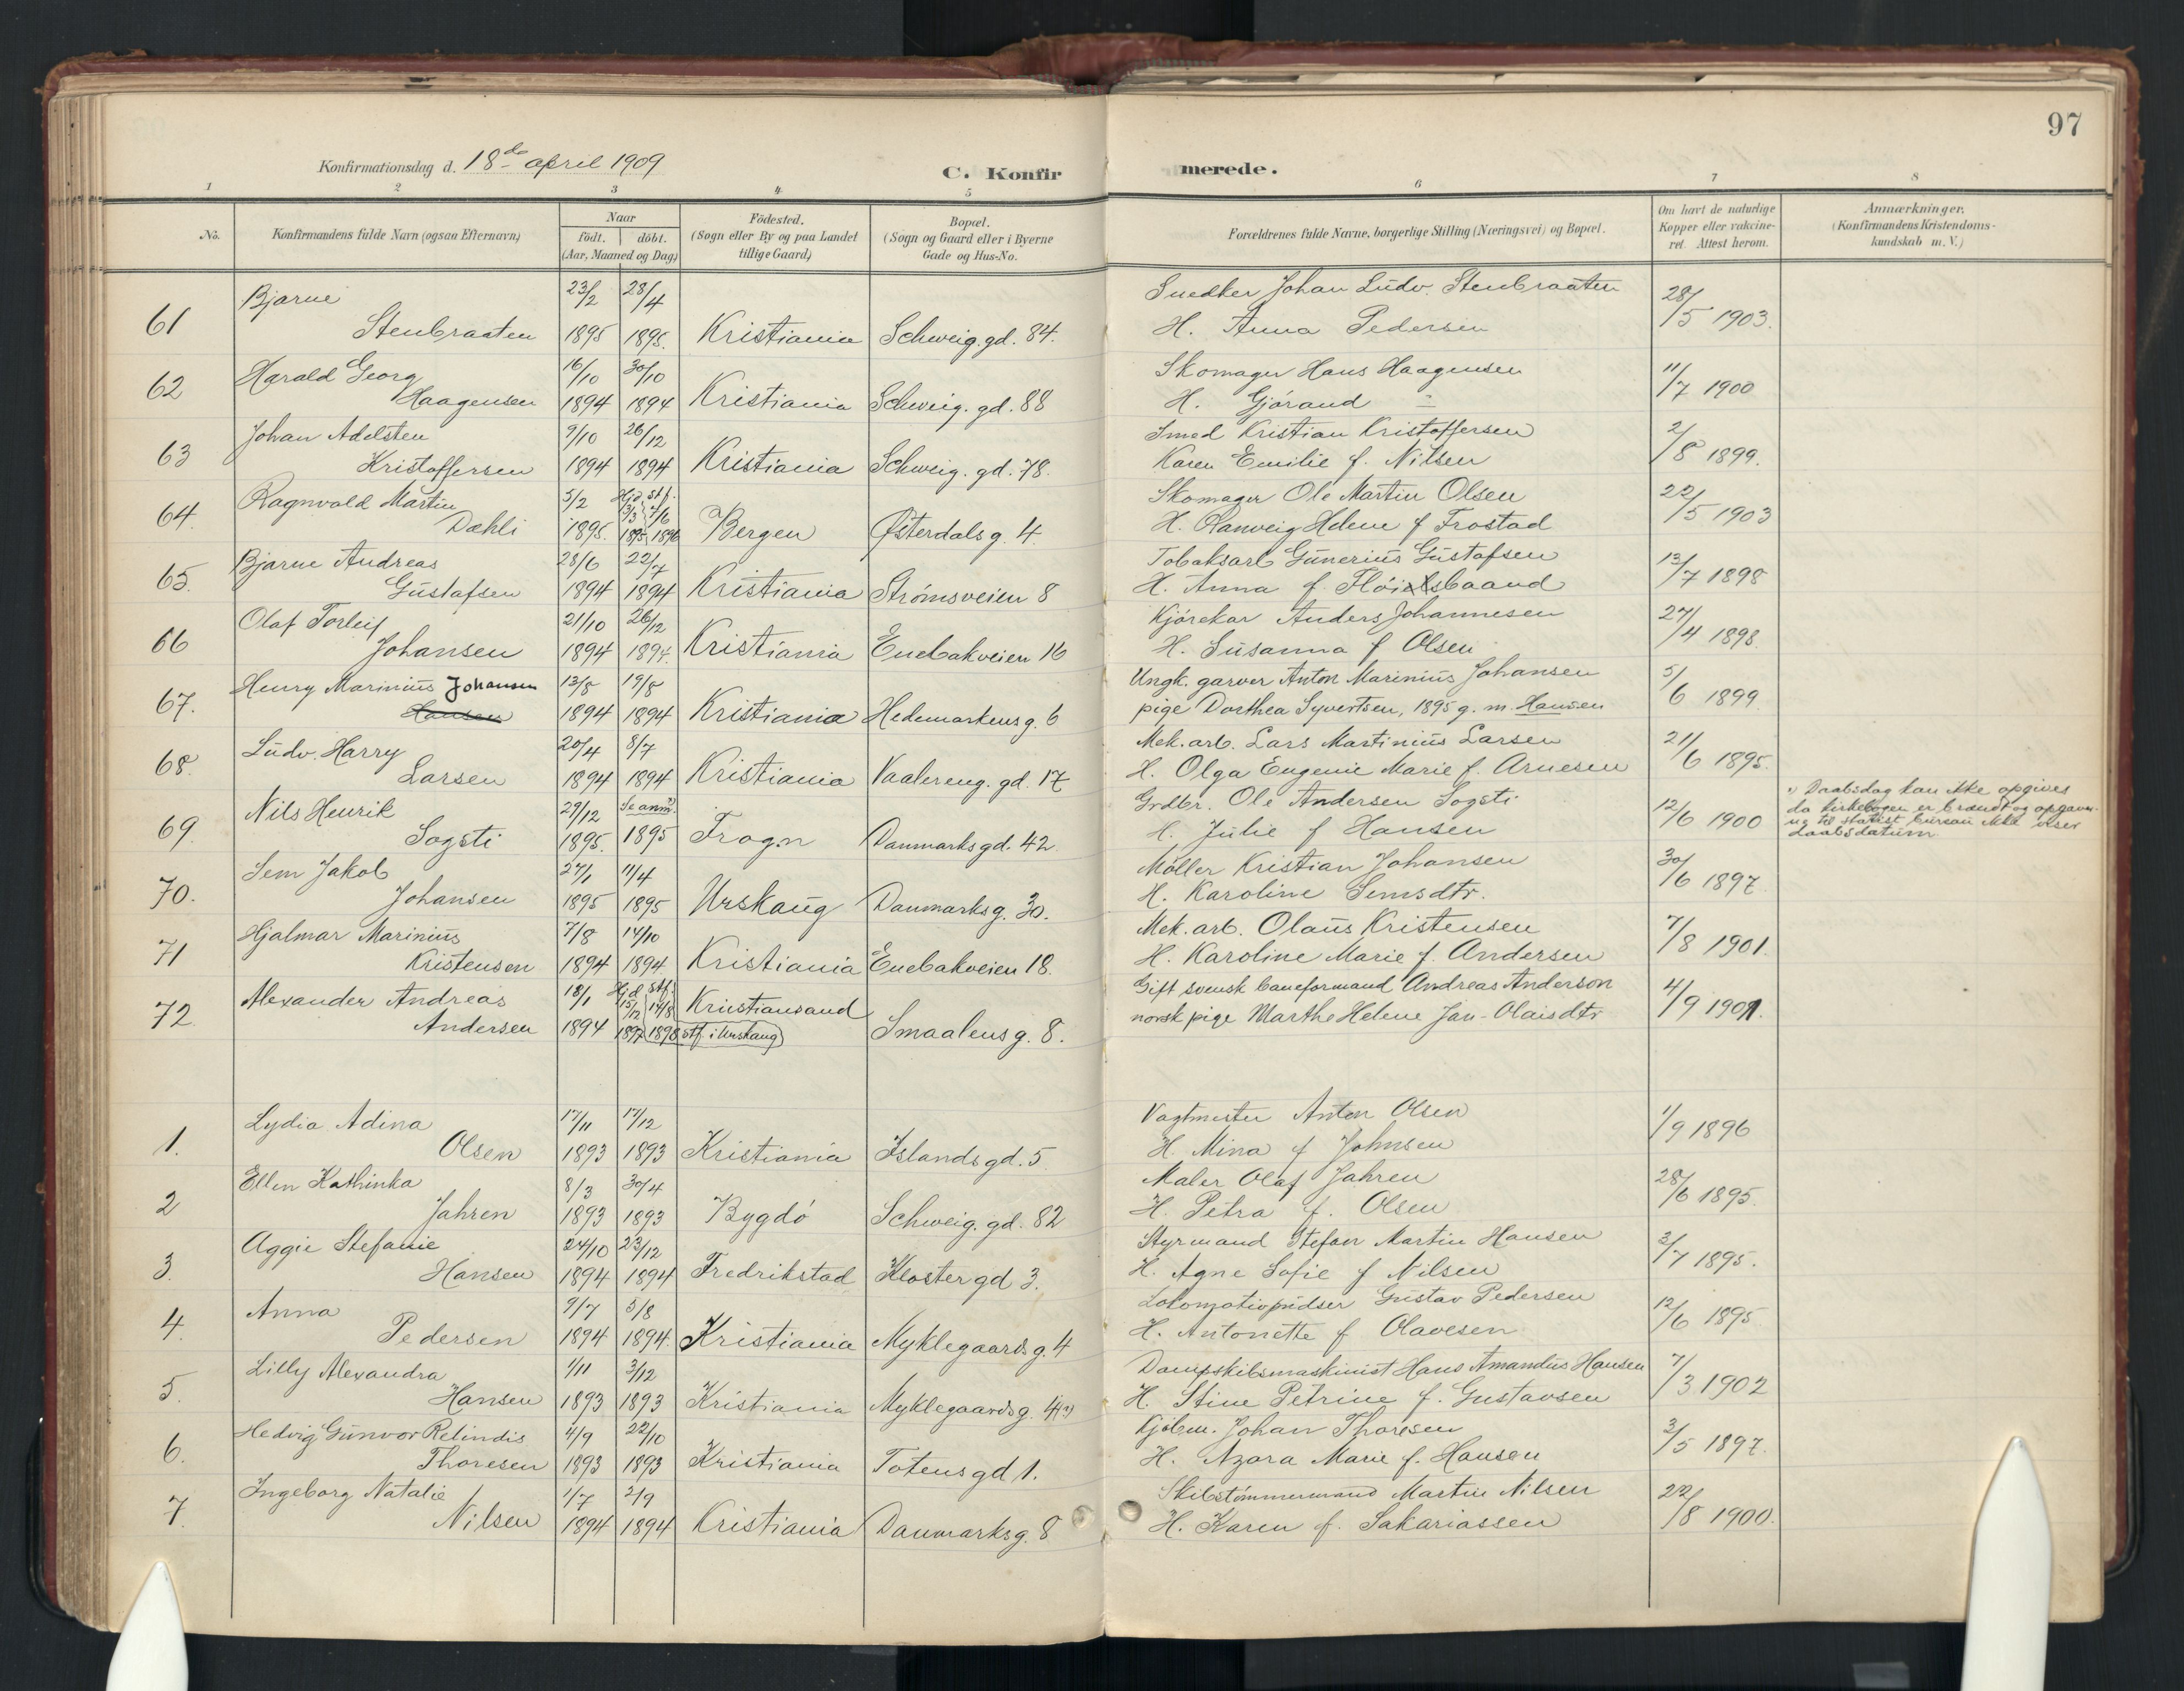 97
Konfirmationsdag d. 18de april 1909
C. Konfirmerede.
1 2 3 4 5 6 7 8
No. | Konfirmandens fulde Navn (ogsaa Efternavn) | Naar födt. | döbt. (Aar, Maaned og Dag) | Födested. (Sogn eller By og paa Landet tillige Gaard) | Bopæl. (Sogn og Gaard eller i Byerne Gade og Hus-No. | Forældrenes fulde Navne, borgerlige Stilling (Næringsvei) og Bopæl. | Om havt de naturlige Kopper eller vakcineret. Attest herom. | Anmærkninger. (Konfirmandens Kristendomskundskab m. V.)
61 Bjarne Stenbraaten 23/2 1895 28/4 1895. Kristiania Schweig. gd. 84. Snedker Johan Ludv. Stenbraaten H. Anna Pedersen 28/5 1903.
62 Harald Georg Haagensen 16/10 1894 30/10 1894 Kristiania Schweig. gd. 88 Skomager Hans Haagensen H. Gjörand 11/7 1900
63 Johan Adelsten Kristoffersen 9/10 1894 26/12 1894 Kristiania Schweig. gd. 78. Smed Kristian Kristoffersen Karen Emilie f. Nilsen 2/8 1899.
64. Ragnvald Martin Dæhli 5/2 1895. Hjd. 3/3 1895 stf. 7/6 1896 Bergen Østerdalsg. 4. Skomager Ole Martin Olsen H. Ranveig Helene f Frostad 22/5 1903
65. Bjarne Andreas Gustafsen 28/6 1894 22/7 1894 Kristiania Strömsveien 8 Tobaksarb Gunerius Gustafsen H. Anna f. 13/7 1898
66 Olaf Torleif Johansen 21/10 1894 26/12 1894. Kristiania Enebakveien 16 Kjörekar Anders Johannesen H. Susanna f Olsen 27/4 1898.
67. Henry Marinius Johansen Hansen 13/8 1894 19/8 1894 Kristiania Hedemarkensg. 6 Ungk. garver Anton Marinius Johansen pige Dorthea Syvertsen, 1895 g. m. Hansen 5/6 1899.
68. Ludv. Harry Larsen 20/4 1894 8/7 1894 Kristiania Vaalereng. gd. 17 Mek. arb. Lars Martinius Larsen H. Olga Eugenie Marie f. Arnesen 21/6 1895.
69. Nils Henrik Sogsti 29/12 1895. Se anm. 1895 Frogn Danmarksgd. 42 Grdbr. Ole Andersen Sogsti H. Julie f Hansen 12/6 1900 Daabsdag kan ikke opgives da kirkebogen er brændt og opgaverne til statist. bureau ikke viser daabsdatum.
70. Sem Jakob Johansen 27/1 1895 11/4 1895 Urskaug Danmarksg. 30. Möller Kristian Johansen H. Karoline Semsdtr. 30/6 1897.
71 Hjalmar Marinius Kristensen 7/8 1894 14/10 1894 Kristiania Enebakveien 18. Mek. arb. Olaus Kristensen H. Karoline Marie f. Andersen 7/8 1901.
72. Alexander Andreas Andersen 18/1 1894 Hjd. 15/12 1897 stf. 14/8 1898 Kristiansand stf. i Urskaug Smaalensg. 8. Gift svensk baneformand Andreas Anderson norsk pige Marthe Helene Jan-Olaisdtr 4/9 1901.
1. Lydia Adina Olsen 17/11 1893 17/12 1893 Kristiania Islandsgd. 5 Vagtmester Anton Olsen H. Mina f Johnsen 1/9 1896
2 Ellen Kathinka Jahren 8/3 1893 30/4 1893 Bygdö Schweig. gd. 82 Maler Olaf Jahren H. Petra f. Olsen 28/6 1895.
3. Aggie Stefanie Hansen 24/10 1894 23/12 1894 Fredrikstad Klostergd 3. Styrmand Stefan Martin Hansen H. Agne Sofie f Nilsen 2/7 1895.
4. Anna Pedersen 9/7 1894 5/8 1894. Kristiania Myklegaardsg. 4 Lokomotivpudser Gustav Pedersen H. Antonette f Olavesen 12/6 1895
5. Lilly Alexandra Hansen 1/11 1893 3/12 1893 Kristiania Myklegaardsg. 4 Dampskibsmaskinist Hans Amandus Hansen H. Stine Petrine f. Gustavsen 7/3 1902
6. Hedvig Gunvor Relindis Thoresen 4/9 1893 22/10 1893 Kristiania Totensgd 1. Kjöbm. Johan Thoresen H. Azora Marie f. Hansen 3/5 1897.
7. Ingeborg Natalie Nilsen 1/7 1894 2/9 1894 Kristiania Danmarksg. 8 Skibstömmermand Martin Nilsen H. Karen f. Sakariassen 22/8 1900.